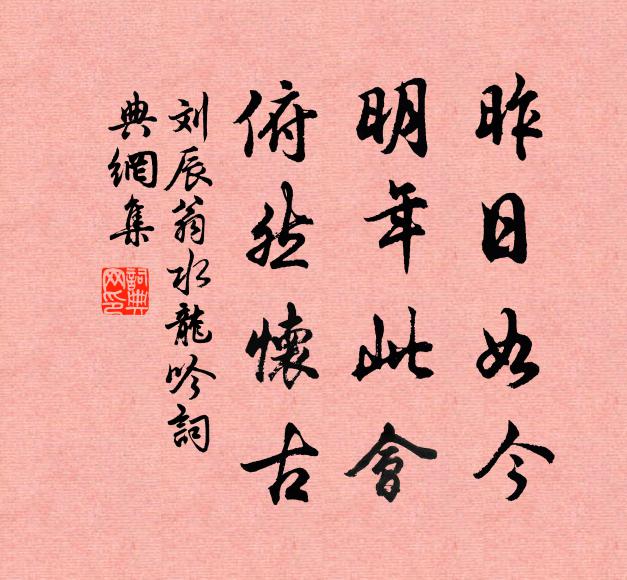 昨日如今
明年此會
俯然懷古
刘辰翁水龍吟詞
典網集
詞典網印